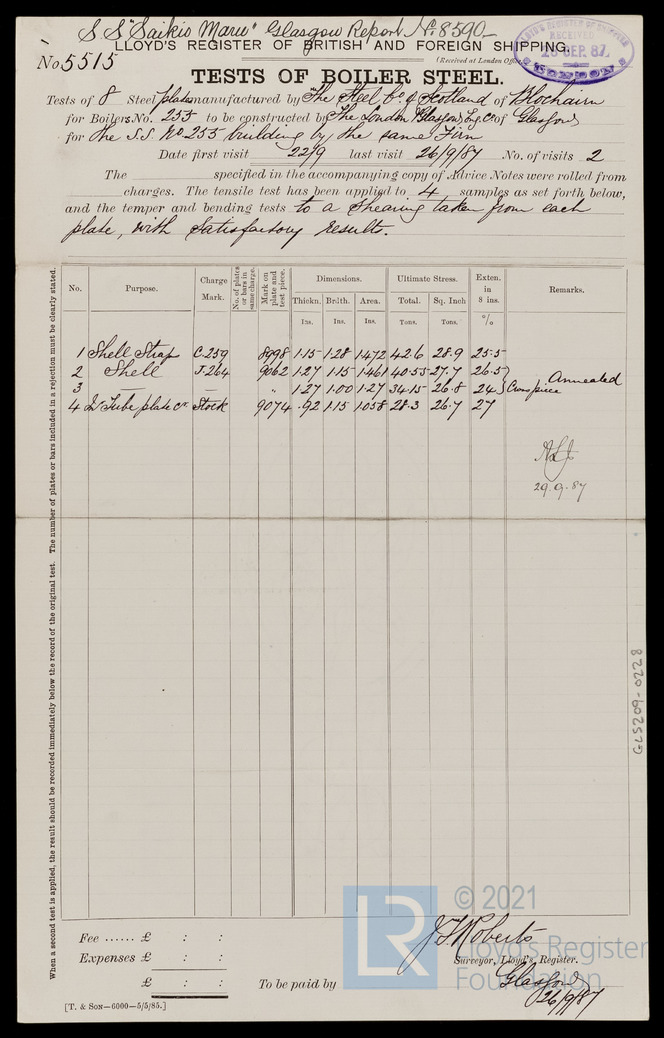 S.S "Saikio Maru" Glasgow Report No. 8590
LLOYD'S REGISTER OF BRITISH AND FOREIGN SHIPPING.
No 5515
(Received at London Office
LLOYD'S REGISTER OF SHIPPING
RECEIVED
28 SEP. 87
LONDON
TESTS OF BOILER STEEL.
Tests of 8 Steel plates manufactured by The Steel Co. of Scotland of Blochairn
for Boilers No. 255 to be constructed by The London & Glasgow Eng. Co of Glasgow
for the S.S. No. 255 building by the same Firm
Date first visit 22/9 last visit 26/9/87 No. of visits 2
The specified in the accompanying copy of Advice Notes were rolled from
charges. The tensile test has been applied to 4 samples as set forth below,
and the temper and bending tests to a shearing taken from each
plate, with satisfactory results.
No. Purpose. Charge Mark. No. of plates or bars in same charge. Mark on plate and test piece. Dimensions. Ultimate Stress. Exten. in 8 ins. Remarks.
Thickn. Brdth. Area. Total. Sq. Inch
Ins. Ins. Ins. Tons. Tons. %
1 Shell Strap C.259 8998 1.15 1.28 1.472 42.6 28.9 25.5
2 Shell J.264 9062 1.27 1.15 1.461 40.55 27.7 26.5
3 — — " 1.27 1.00 1.27 34.15 26.8 24 Cross piece Annealed
4 Tube plate Stock 9074 .92 1.15 1.058 28.3 26.7 27
29.9.87
When a second test is applied, the result should be recorded immediately below the record of the original test. The number of plates or bars included in a rejection must be clearly stated.
GLS209-0228
Fee ...... £ : :
Expenses £ : :
£ : :
To be paid by
J T Roberts
Surveyor, Lloyd's Register.
Glasgow
26/9/87
[T. & SON—6000—5/5/85.]
LR
© 2021
Lloyd's Register
Foundation